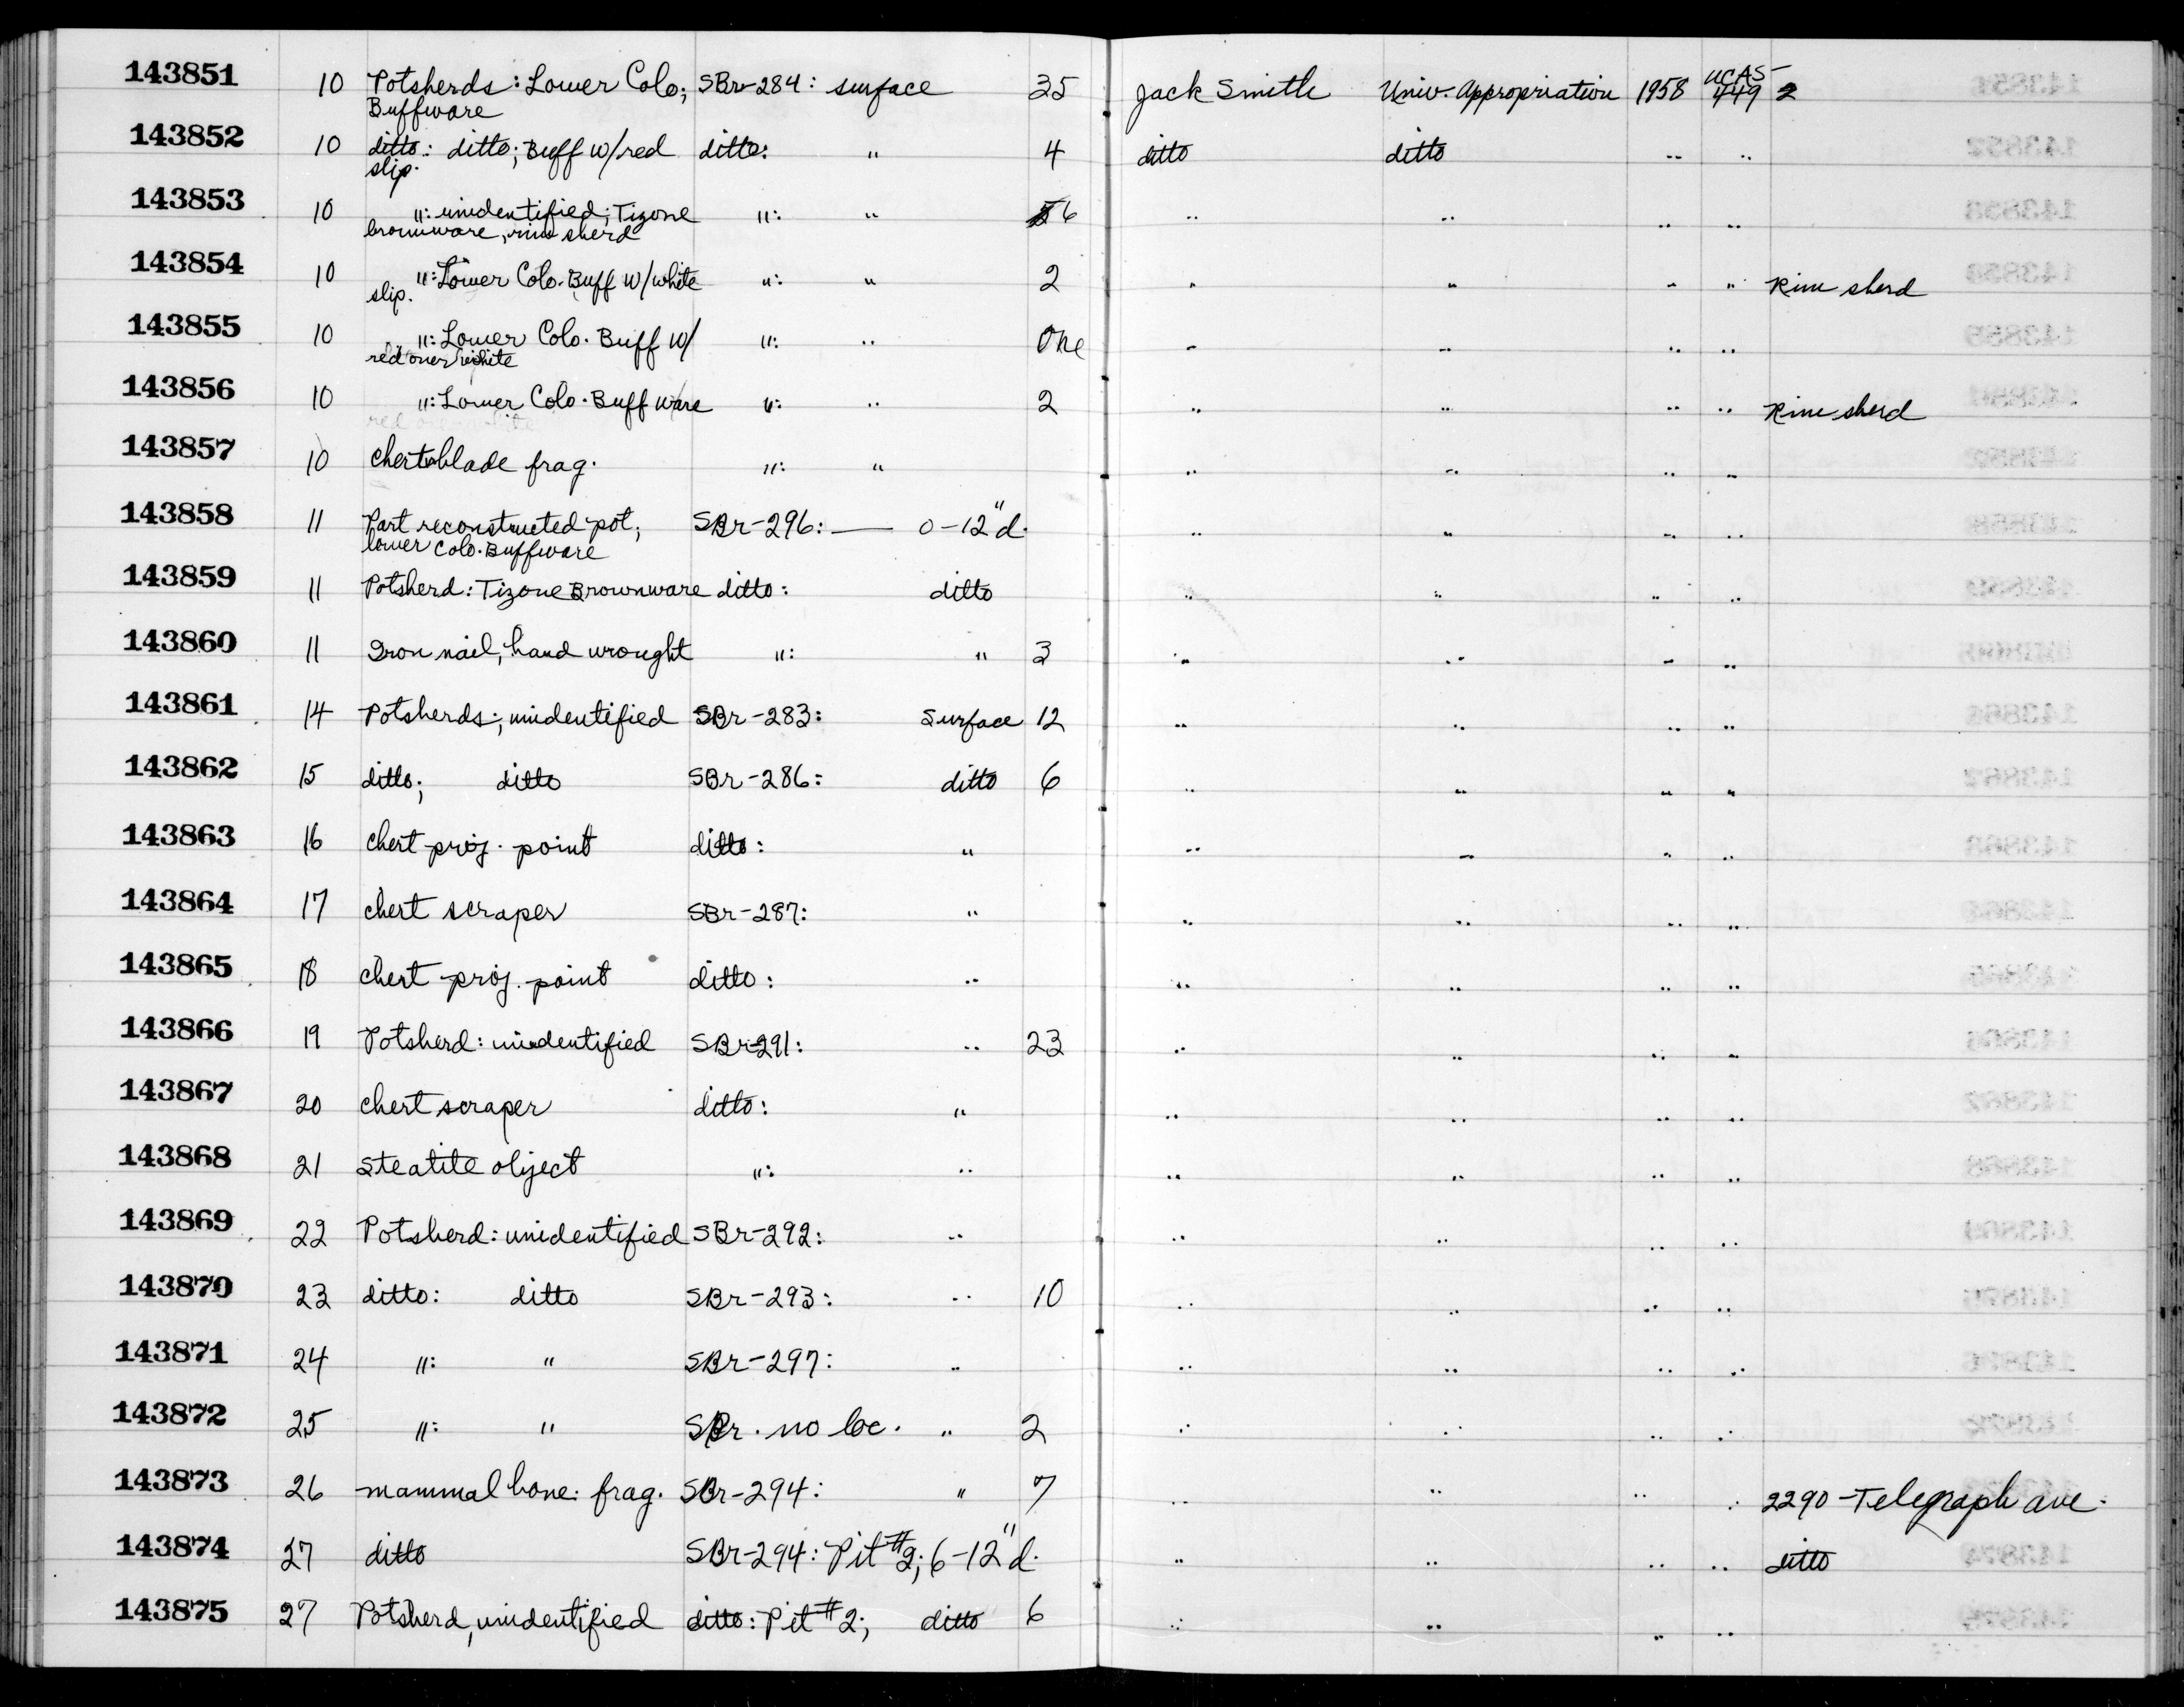 143851 10 Potsherds: Lower Colo; SBr-284: surface 35 Jack Smith Univ. Appropriation 1958 UCAS-449 2
Buffware
143852 10 ditto: ditto; Buff w/red ditto: " 4 ditto ditto " "
slip.
143853 10 ": unidentified; Tizone ": " 6 " " " "
brownware, rim sherd
143854 10 ": Lower Colo. Buff w/white ": " 2 " " " " Rim sherd
slip.
143855 10 ": Lower Colo. Buff w/ ": " One " " " "
red over white
143856 10 ": Lower Colo. Buff ware ": " 2 " " " " Rim sherd
143857 10 chert blade frag. ": " " " " "
143858 11 Part reconstructed pot; SBr-296: — 0-12" d. " " " "
lower Colo. Buffware
143859 11 Potsherd: Tizone Brownware ditto: ditto " " " "
143860 11 Iron nail, hand wrought ": " 3 " " " "
143861 14 Potsherds; unidentified SBr-283: Surface 12 " " " "
143862 15 ditto; ditto SBr-286: ditto 6 " " " "
143863 16 chert proj. point ditto: " " " " "
143864 17 chert scraper SBr-287: " " " " "
143865 18 chert proj. point ditto: " " " " "
143866 19 Potsherd: unidentified SBr-291: " 23 " " " "
143867 20 chert scraper ditto: " " " " "
143868 21 steatite object ": " " " " "
143869 22 Potsherd: unidentified SBr-292: " " " " "
143870 23 ditto: ditto SBr-293: " 10 " " " "
143871 24 ": " SBr-297: " " " " "
143872 25 ": " SBr. no loc. " 2 " " " "
143873 26 mammal bone: frag. SBr-294: " 7 " " " " 2290-Telegraph ave.
143874 27 ditto SBr-294: Pit #2; 6-12" d. " " " " ditto
143875 27 Potsherd, unidentified ditto: Pit #2; ditto 6 " " " "